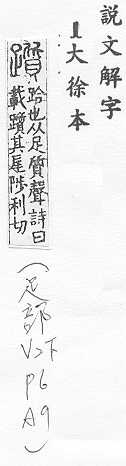 說文解字
1大徐本
躓 跲也从足質聲詩曰
載躓其尾陟利切
(足部 V2下 P6 A9)